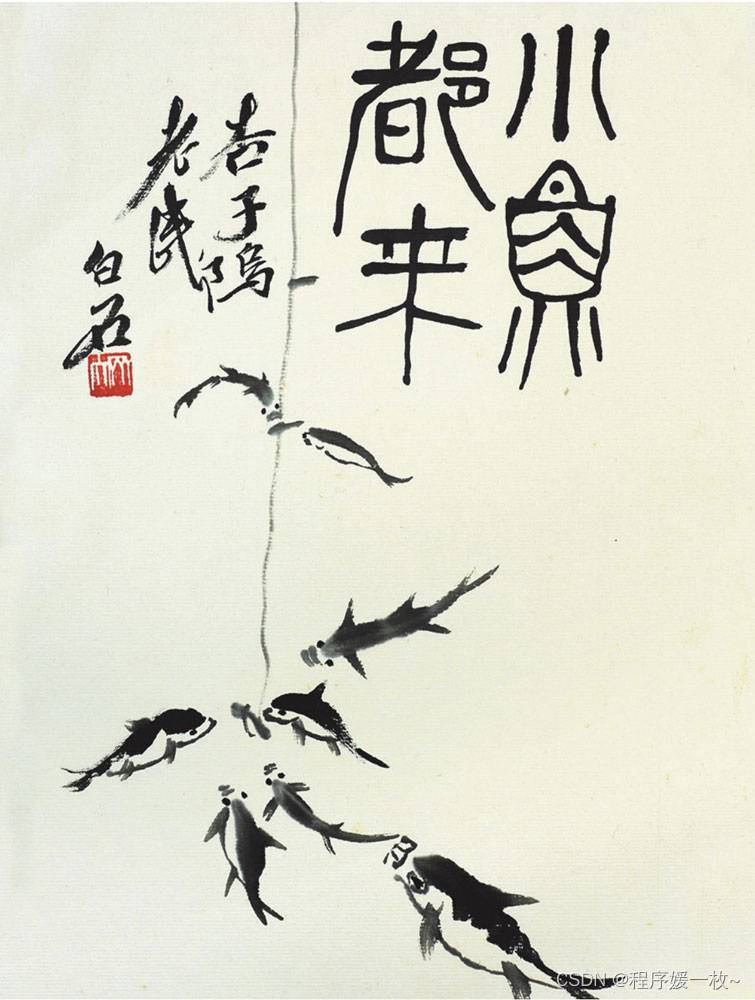 小魚
都来
杏子隖
老民
白石
CSDN @程序媛一枚~